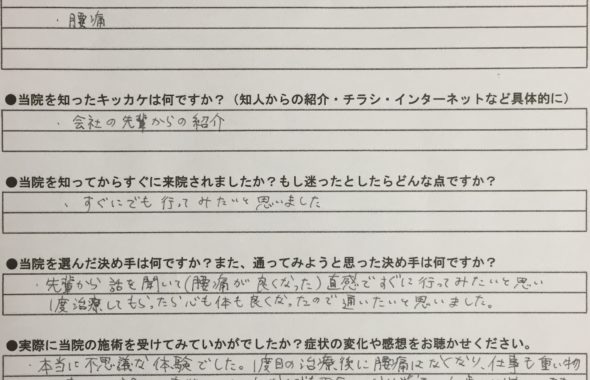 ・腰痛
●当院を知ったキッカケは何ですか？（知人からの紹介・チラシ・インターネットなど具体的に）
・会社の先輩からの紹介
●当院を知ってからすぐに来院されましたか？もし迷ったとしたらどんな点ですか？
・すぐにでも行ってみたいと思いました
●当院を選んだ決め手は何ですか？また、通ってみようと思った決め手は何ですか？
・先輩から話を聞いて(腰痛が良くなった)直感ですぐに行ってみたいと思い
1度治療してもらったら心も体も良くなったので通いたいと思いました。
●実際に当院の施術を受けてみていかがでしたか？症状の変化や感想をお聴かせください。
・本当に不思議な体験でした。1度目の治療後に腰痛はなくなり、仕事も重い物